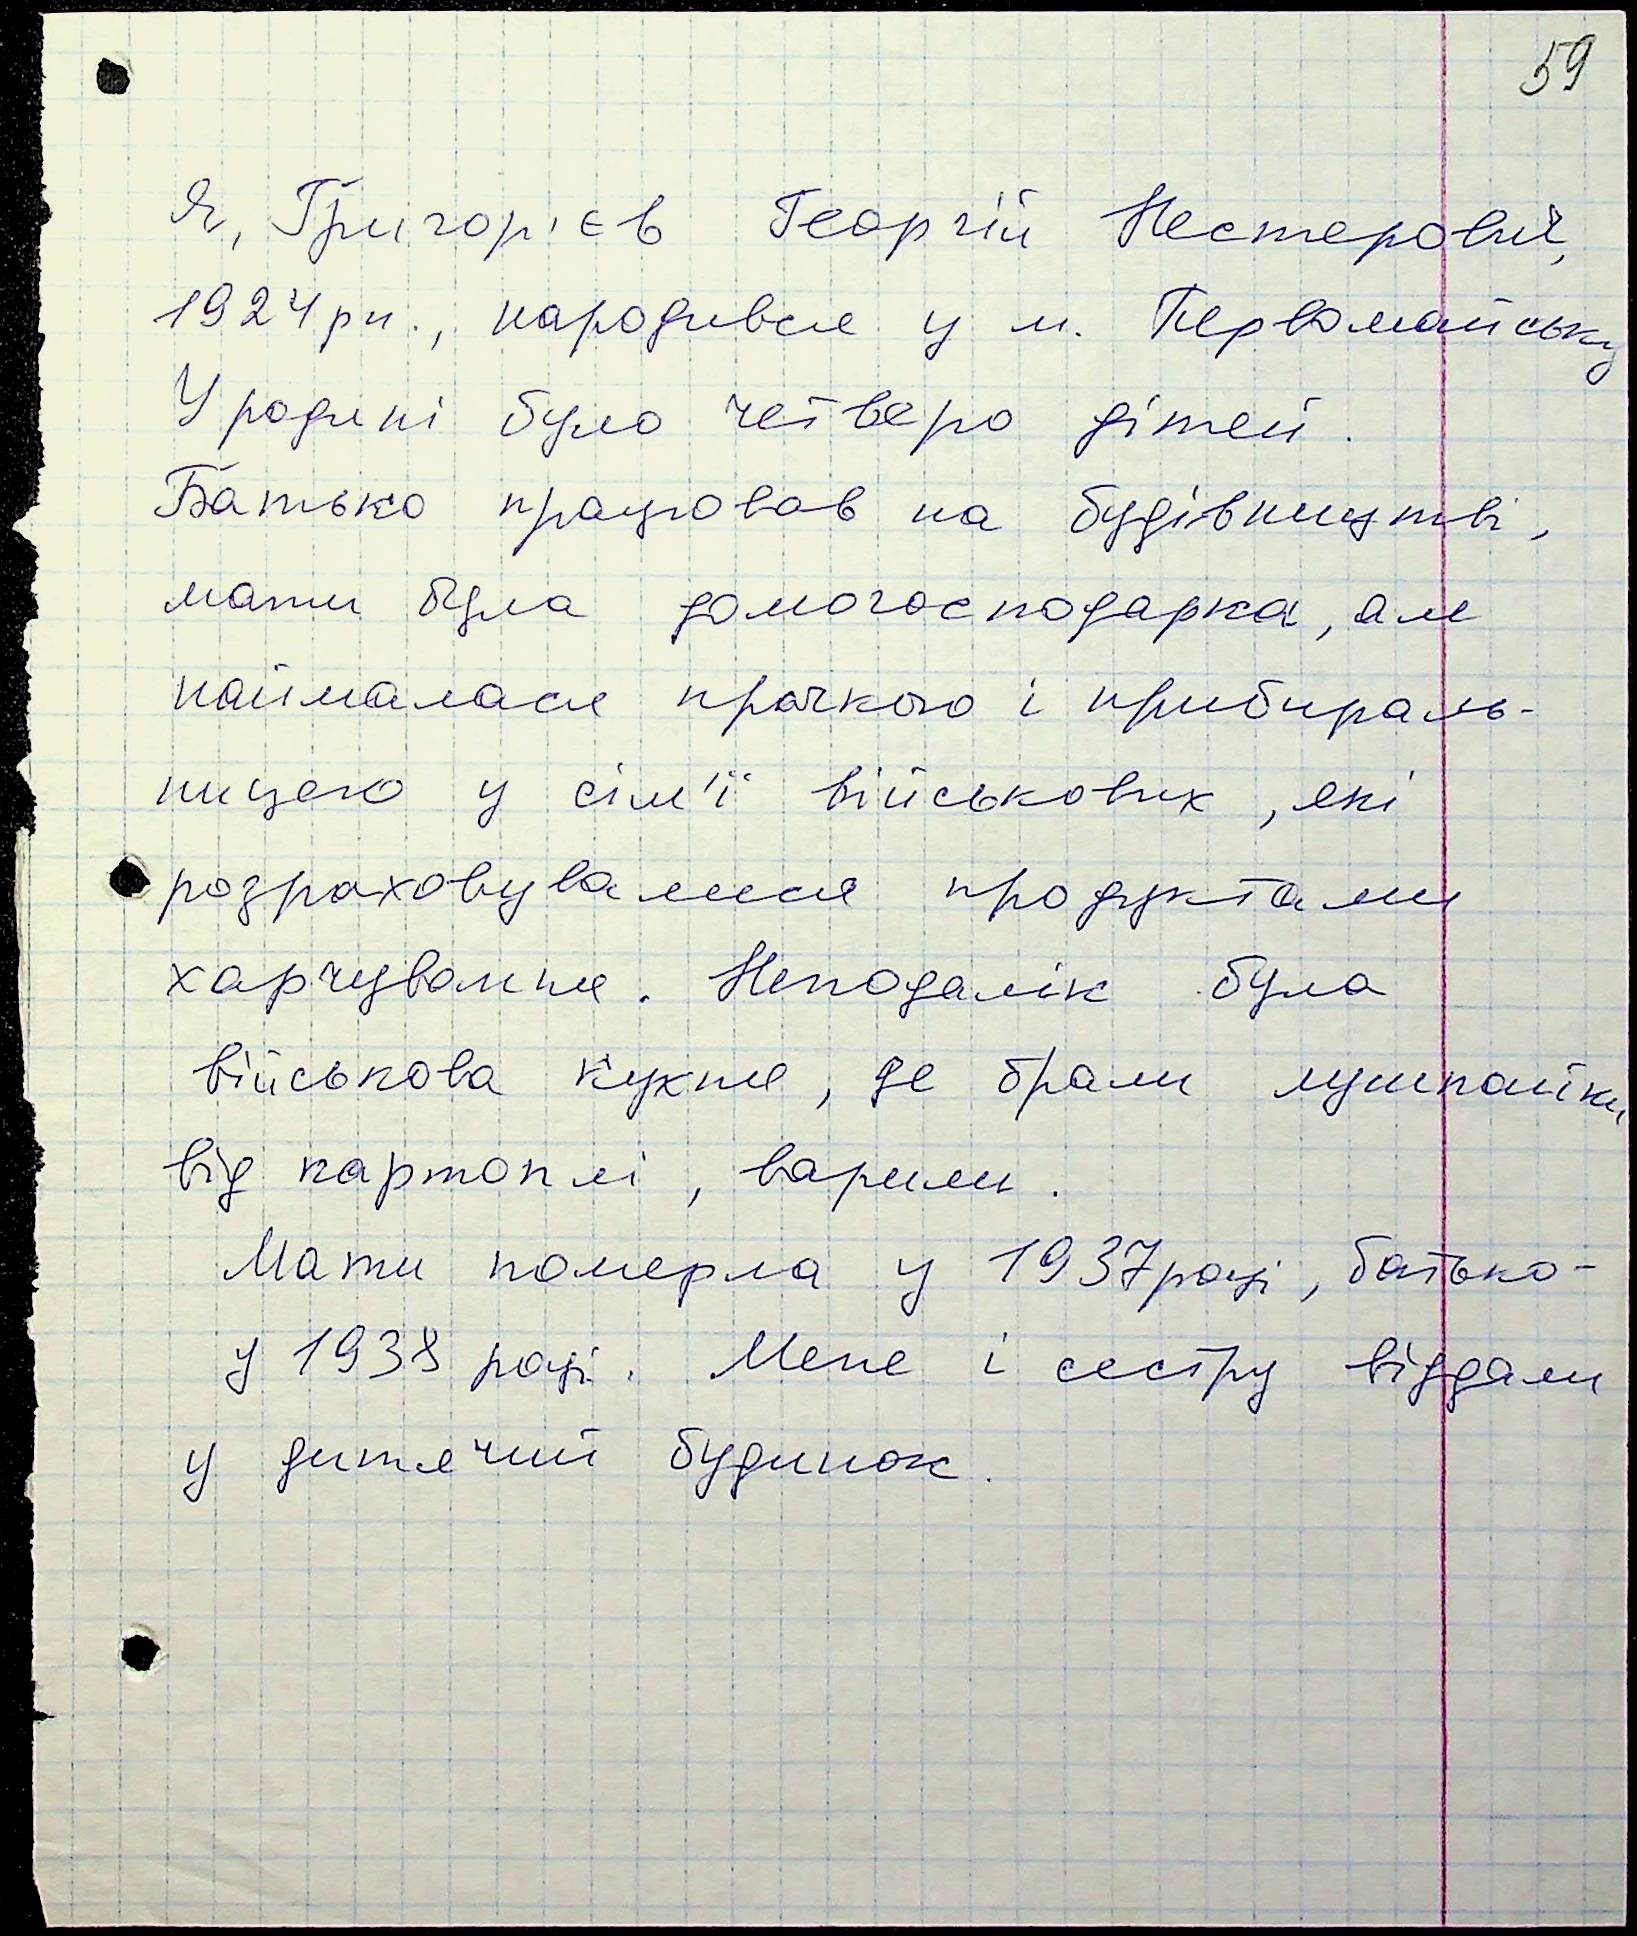 59
Я, Григор'єв Георгій Нестерович,
1924 рн., народився у м. Первомайську
У родині було четверо дітей.
Батько працював на будівництві,
мати була домогосподарка, але
наймалася прачкою і прибираль-
ницею у сім'ї військових, які
розраховувалися продуктами
харчування. Неподалік була
військова кухня, де брали лушпайки
від картоплі, варили.
Мати померла у 1937 році, батько -
у 1938 році. Мене і сестру віддали
у дитячий будинок.